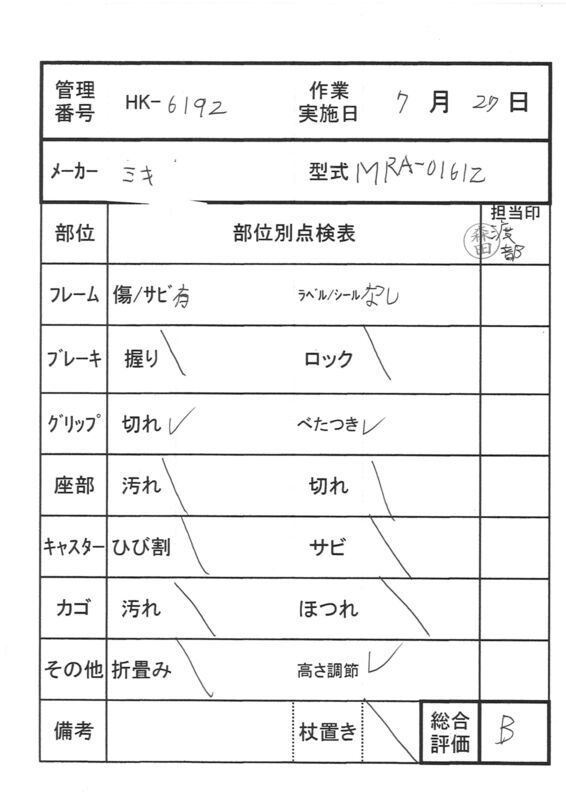 管理番号 HK-6192 作業実施日 7月27日
メーカー ミキ 型式 MRA-0161Z
部位 部位別点検表 担当印 森田 渡部
フレーム 傷/サビ 有 ラベル/シール なし
ブレーキ 握り \ ロック \
グリップ 切れ ✓ べたつき ✓
座部 汚れ \ 切れ \
キャスター ひび割 \ サビ \
カゴ 汚れ \ ほつれ \
その他 折畳み \ 高さ調節 ✓
備考 杖置き \ 総合評価 B